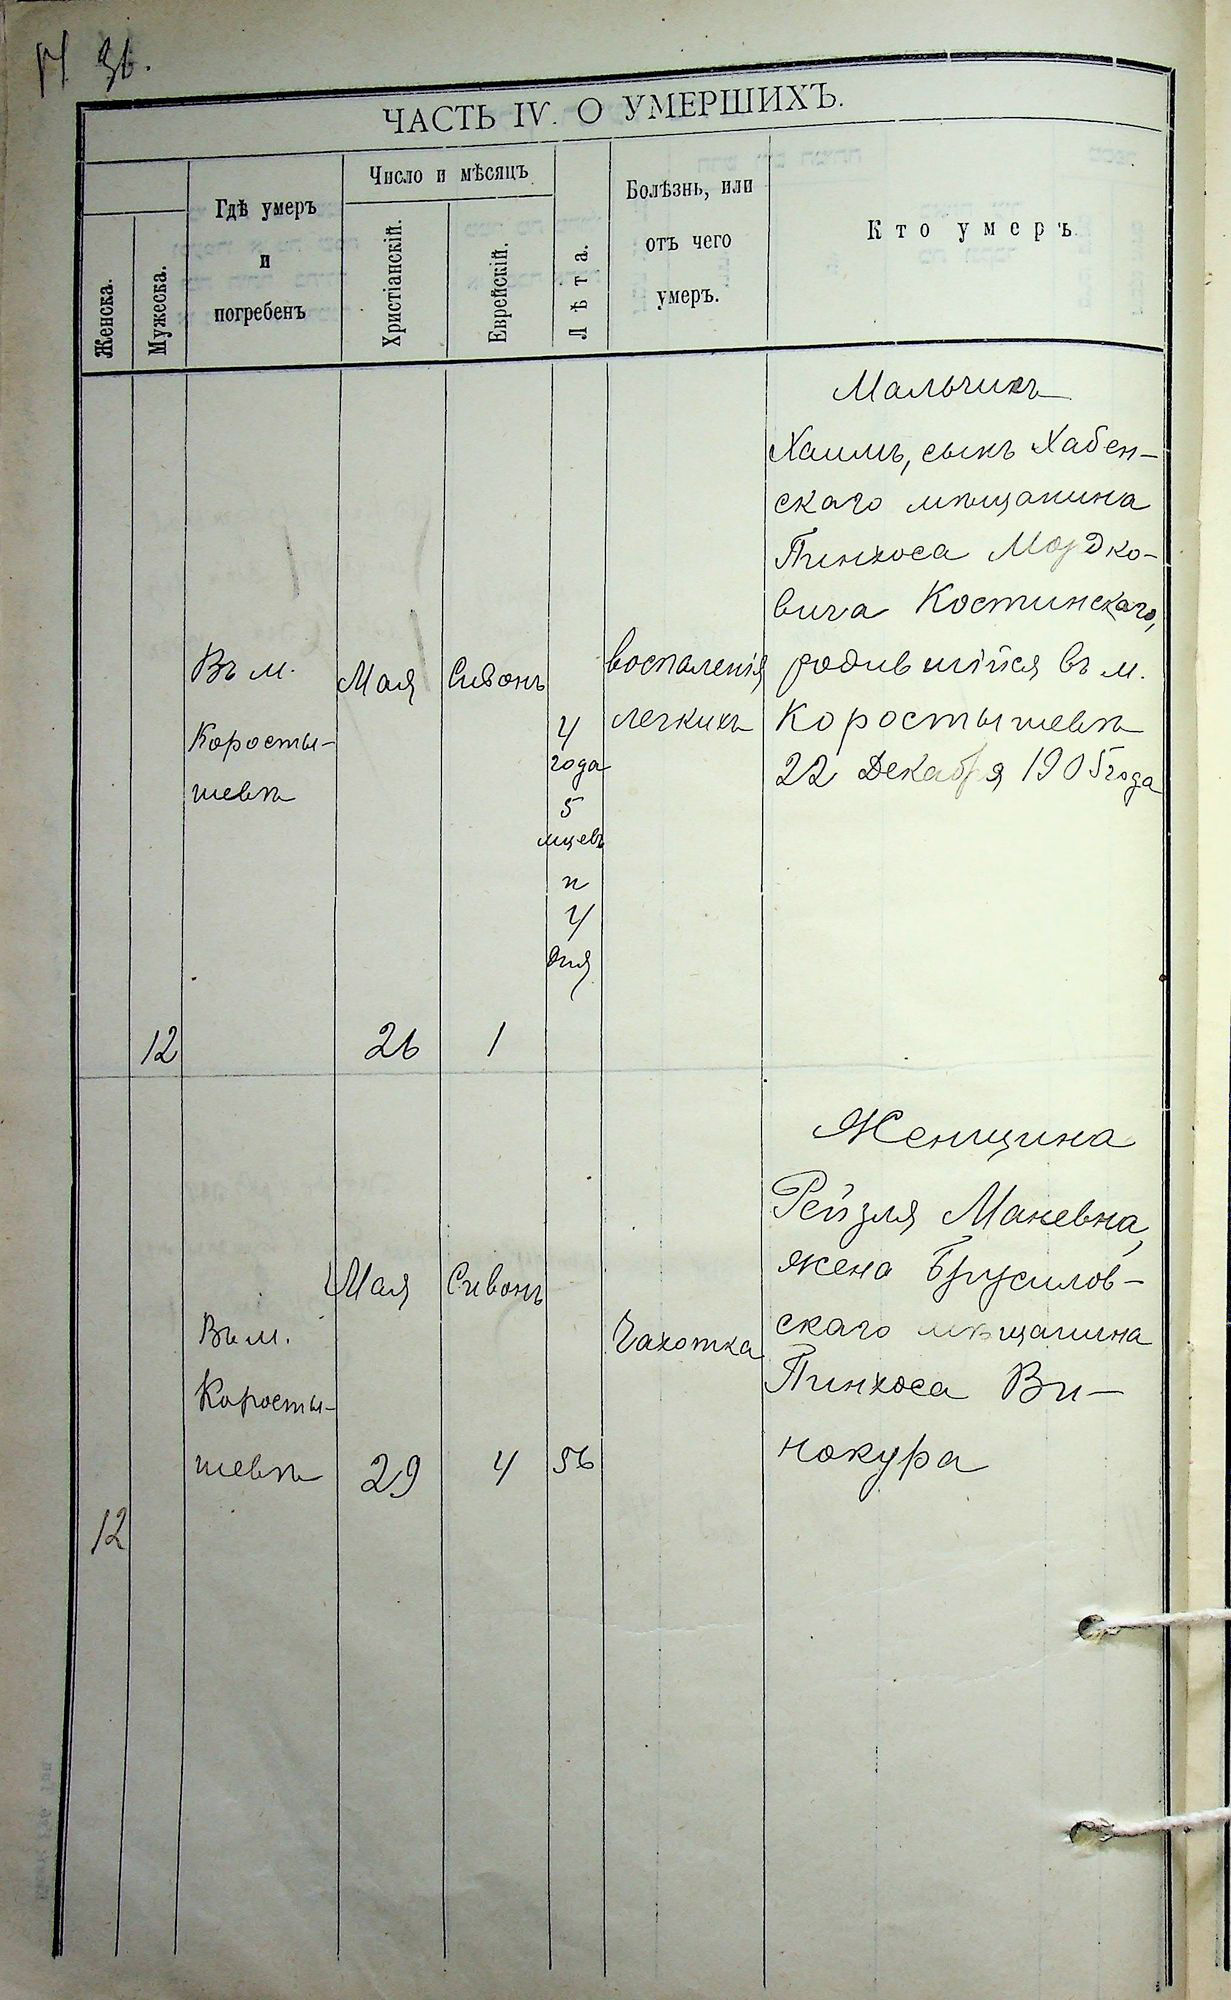 36.
ЧАСТЬ IV. О УМЕРШИХЪ.
Женска.
Мужеска.
Гдѣ умеръ
и
погребенъ
Число и мѣсяцъ
Христіанскій.
Еврейскій.
Лѣта.
Болѣзнь, или
отъ чего
умеръ.
Кто умеръ
12
Въ м.
Коросты-
шевѣ
Мая
26
Сивонъ
1
4
года
5
мцевъ
и
4
дня
воспаленія
легкихъ
Мальчикъ
Хаимъ, сынъ Хабен-
скаго мѣщанина
Пинхоса Мордко-
вича Костинскаго,
родившійся въ м.
Коростышевѣ
22 Декабря 1905 года
12
Въ м.
Коросты-
шевѣ
Мая
29
Сивонъ
4
56
Чахотка
Женщина
Рейзля Маневна,
жена Брусилов-
скаго мѣщанина
Пинхоса Ви-
нокура